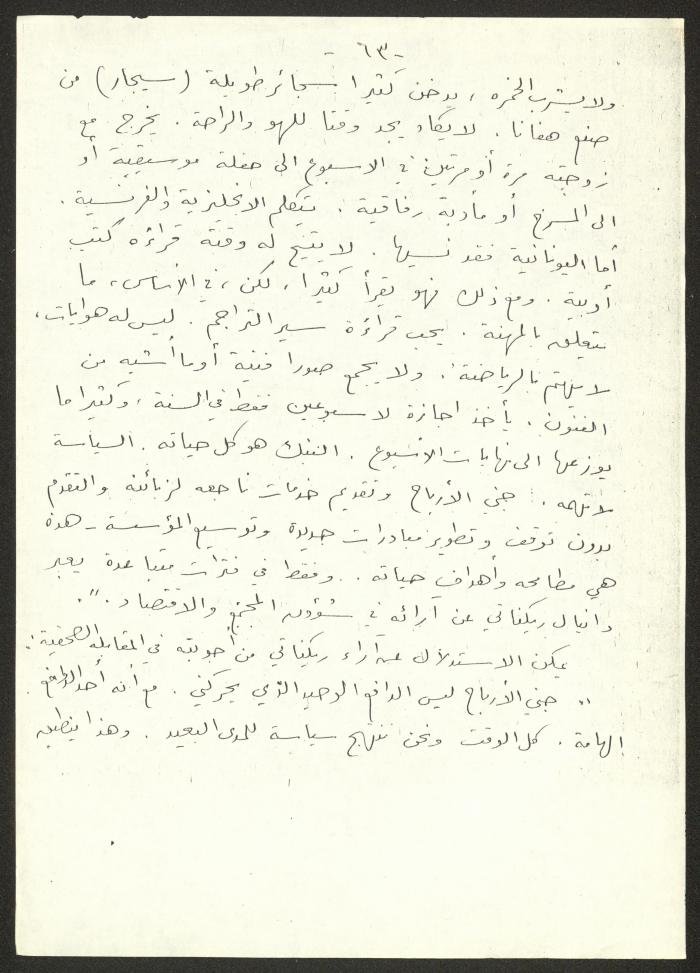 - ٦٣ -
ولا يشرب الخمره ، يدخن كثيرا سجائر طويلة (سيجار) من
صنع هفانا . لا يكاد يجد وقتا للهو والراحة . يخرج مع
زوجته مرة أو مرتين في الاسبوع الى حفلة موسيقية أو
الى المسرح أو مأدبة رفاقية . يتكلم الانجليزية والفرنسية .
أما اليونانية فقد نسيها . لا يتيح له وقته قراءة كتب
أدبية . ومع ذلك فهو يقرأ كثيرا ، لكن ، في الأساس ، ما
يتعلق بالمهنة . يحب قراءة سير التراجم . ليس له هوايات ،
لا يهتم بالرياضة . ولا يجمع صورا فنية أو ما أشبه من
الفنون . يأخذ اجازة لاسبوعين فقط في السنة ، وكثيرا ما
يوزعها الى نهايات الأسبوع . البنك هو كل حياته . السياسة
لا تهمه . جني الأرباح وتقديم خدمات ناجعه لزبائنه والتقدم
بدون توقف وتطوير مبادرات جديدة وتوسيع المؤسسة - هذه
هي مطامحه وأهداف حياته . . وفقط في فترات متباعدة يعبر
دانيال ريكناتي عن آرائه في شؤون المجتمع والاقتصاد . " .
يمكن الاستدلال عن آراء ريكناتي من أجوبته في المقابله الصحفية :
" جني الأرباح ليس الدافع الوحيد الذي يحركني . مع أنه أحد الدوافع
الهامة . كل الوقت ونحن ننتهج سياسة للمدى البعيد . وهذا ينطبق